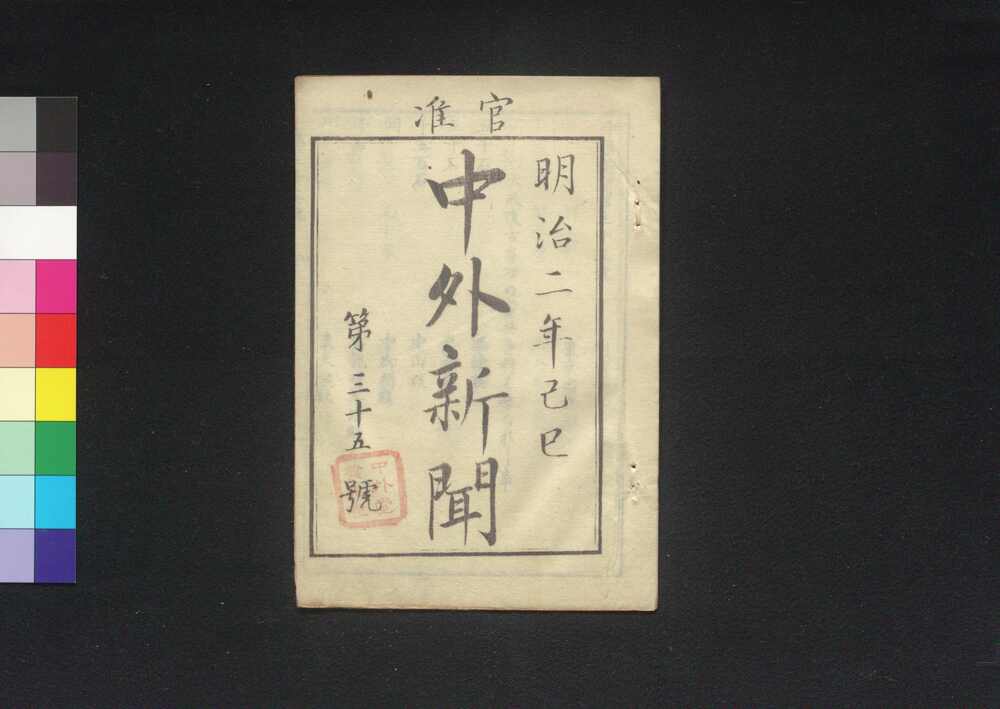 官准
明治二年己巳
中外新聞
第三十五號